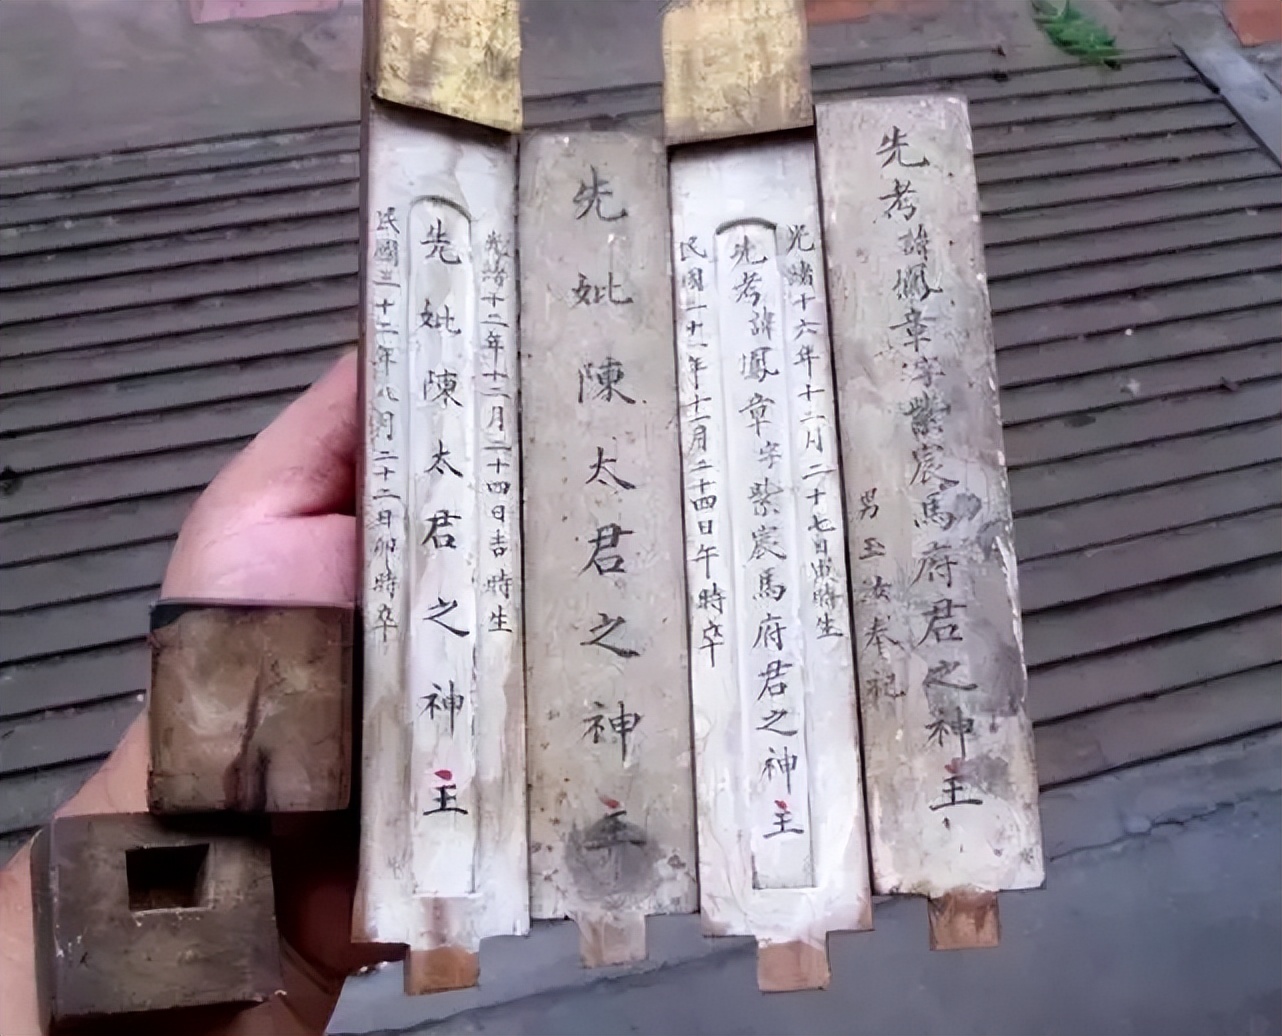 先考諱鳳章字紫宸馬府君之神主
男玉汝奉祀
光緒十六年十二月二十七日戌時生
先考諱鳳章字紫宸馬府君之神主
民國二十年十二月二十四日午時卒
先妣陳太君之神主
光緒十二年十二月二十四日吉時生
先妣陳太君之神主
民國三十二年八月二十二日卯時卒